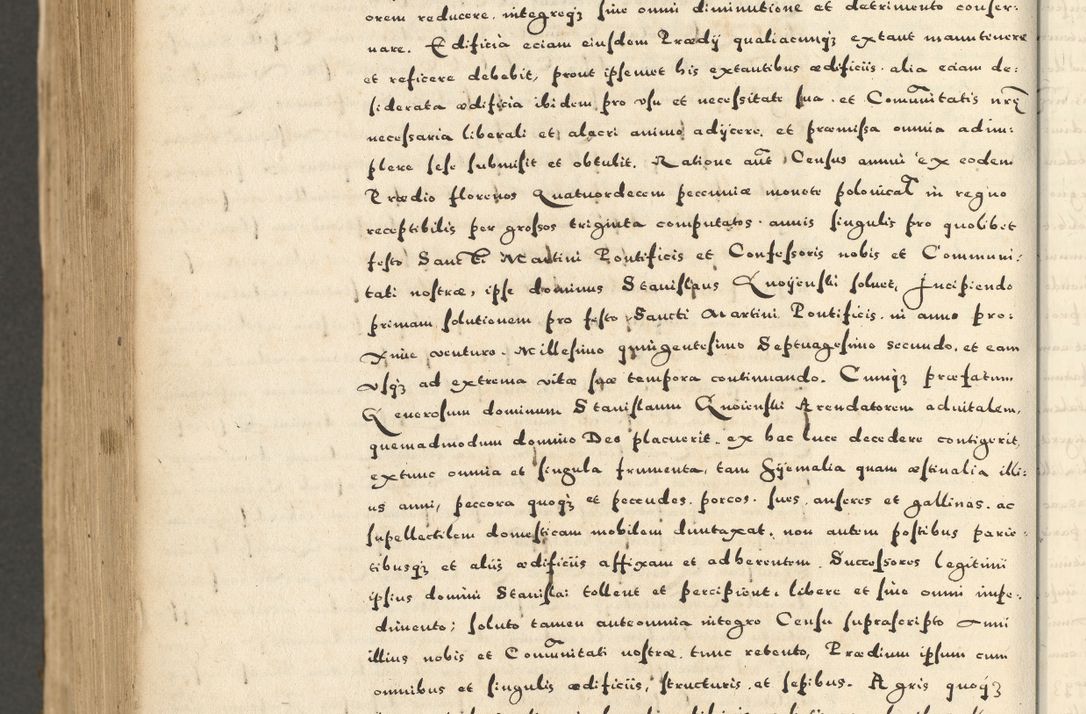 orem reducere, integreq₃ sine omni diminutione et detrimento conser:
uare. Edificia eciam eiusdem Prædij qualiacunq₃ extant manutenere
et reficere debebit, prout ipsemet his extantibus ædificiis. alia eciam de:
siderata ædificia ibidem pro usu et necessitate sua. et Comunitatis nrę
necessaria liberali et alacri animo adijcere, et præmissa omnia adim:
plere sese submisit et obtulit. Ratione aut Census annui ex eodem
Prædio florenos Quatuordecem pecuniæ monete polonical in regno
receptibilis per grossos triginta computatos. annis singulis pro quolibet
festo Sancti Martini Pontificis et Confessoris nobis et Communi:
tati nostræ, ipse dominus Stanislaus Gnoijenski soluet, Incipiendo
primam solutionem pro festo Sancti Martini Pontificis. in anno pro:
xime venturo. Millesimo quingentesimo Septuagesimo secundo, et eam
usq₃ ad extrema vitæ suæ tempora continuando. Cumq₃ præfatum
Generosum dominum Stanislaum Gnoienski Arendatorem aduitalem,
quemadmodum domino Deo placuerit. ex hac luce decedere contigerit,
extunc omnia et singula frumenta, tam Hyemalia quam æstiualia illi:
us anni, peccora quoq₃ et pecudes. porcos. sues. anseres et gallinas. ac
supellectilem domesticam mobilem duntaxat. non autem postibus parie:
tibusq₃ et alijs ædificiis affixam et adherentem. Successores legitimi
ipsius domini Stanislai tollent et percipient. libere et sine omni impe:
dimento; soluto tamen anteomnia integro Censu suprascripto anni
illius nobis et Comunitati nostræ. tunc rebento, Prædium ipsum cum
omnibus et singulis ædificiis, structuris. et sepibus. Agris quoq₃